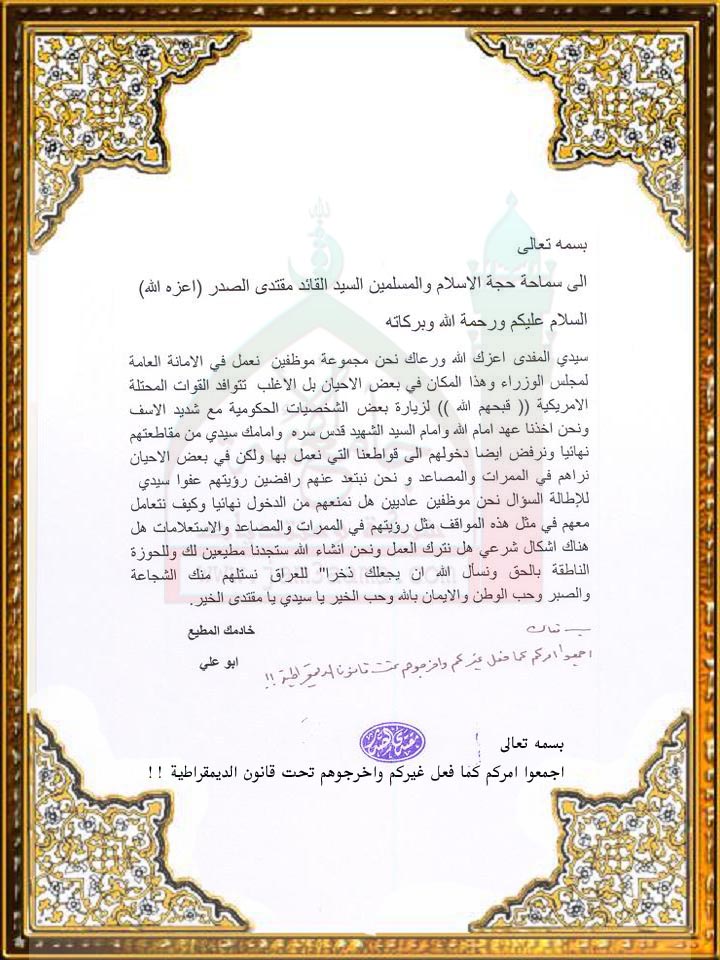 بسمه تعالى
الى سماحة حجة الاسلام والمسلمين السيد القائد مقتدى الصدر (اعزه الله)
السلام عليكم ورحمة الله وبركاته
سيدي المفدى اعزك الله ورعاك نحن مجموعة موظفين نعمل في الامانة العامة
لمجلس الوزراء وهذا المكان في بعض الاحيان بل الأغلب تتوافد القوات المحتلة
الامريكية (( قبحهم الله )) لزيارة بعض الشخصيات الحكومية مع شديد الاسف
ونحن اخذنا عهد امام الله وامام السيد الشهيد قدس سره وامامك سيدي من مقاطعتهم
نهائيا ونرفض ايضا دخولهم الى قواطعنا التي نعمل بها ولكن في بعض الاحيان
نراهم في الممرات والمصاعد و نحن نبتعد عنهم رافضين رؤيتهم عفوا سيدي
للإطالة السؤال نحن موظفين عاديين هل نمنعهم من الدخول نهائيا وكيف نتعامل
معهم في مثل هذه المواقف مثل رؤيتهم في الممرات والمصاعد والاستعلامات هل
هناك اشكال شرعي هل نترك العمل ونحن انشاء الله ستجدنا مطيعين لك وللحوزة
الناطقة بالحق ونسأل الله ان يجعلك ذخرا" للعراق نستلهم منك الشجاعة
والصبر وحب الوطن والايمان بالله وحب الخير يا سيدي يا مقتدى الخير.
خادمك المطيع
ابو علي
بسمه تعالى
اجمعوا امركم كما فعل غيركم واخرجوهم تحت قانون الديمقراطية !!
مقتدى الصدر
بسمه تعالى
اجمعوا امركم كما فعل غيركم واخرجوهم تحت قانون الديمقراطية !!